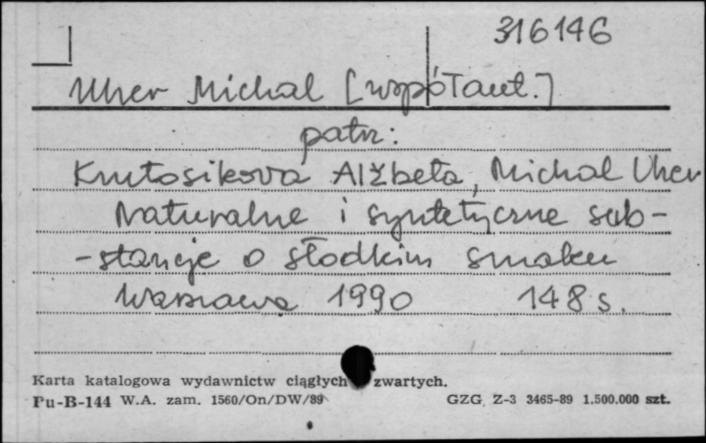 316146
Uher Michal [współaut.]
patrz:
Krutosikova Alžbeta, Michal Uher
Naturalne i syntetyczne sub-
-stancje o słodkim smaku
Warszawa 1990 148 s.
Karta katalogowa wydawnictw ciągłych zwartych.
Pu-B-144 W.A. zam. 1560/On/DW/89 GZG. Z-3 3465-89 1.500.000 szt.